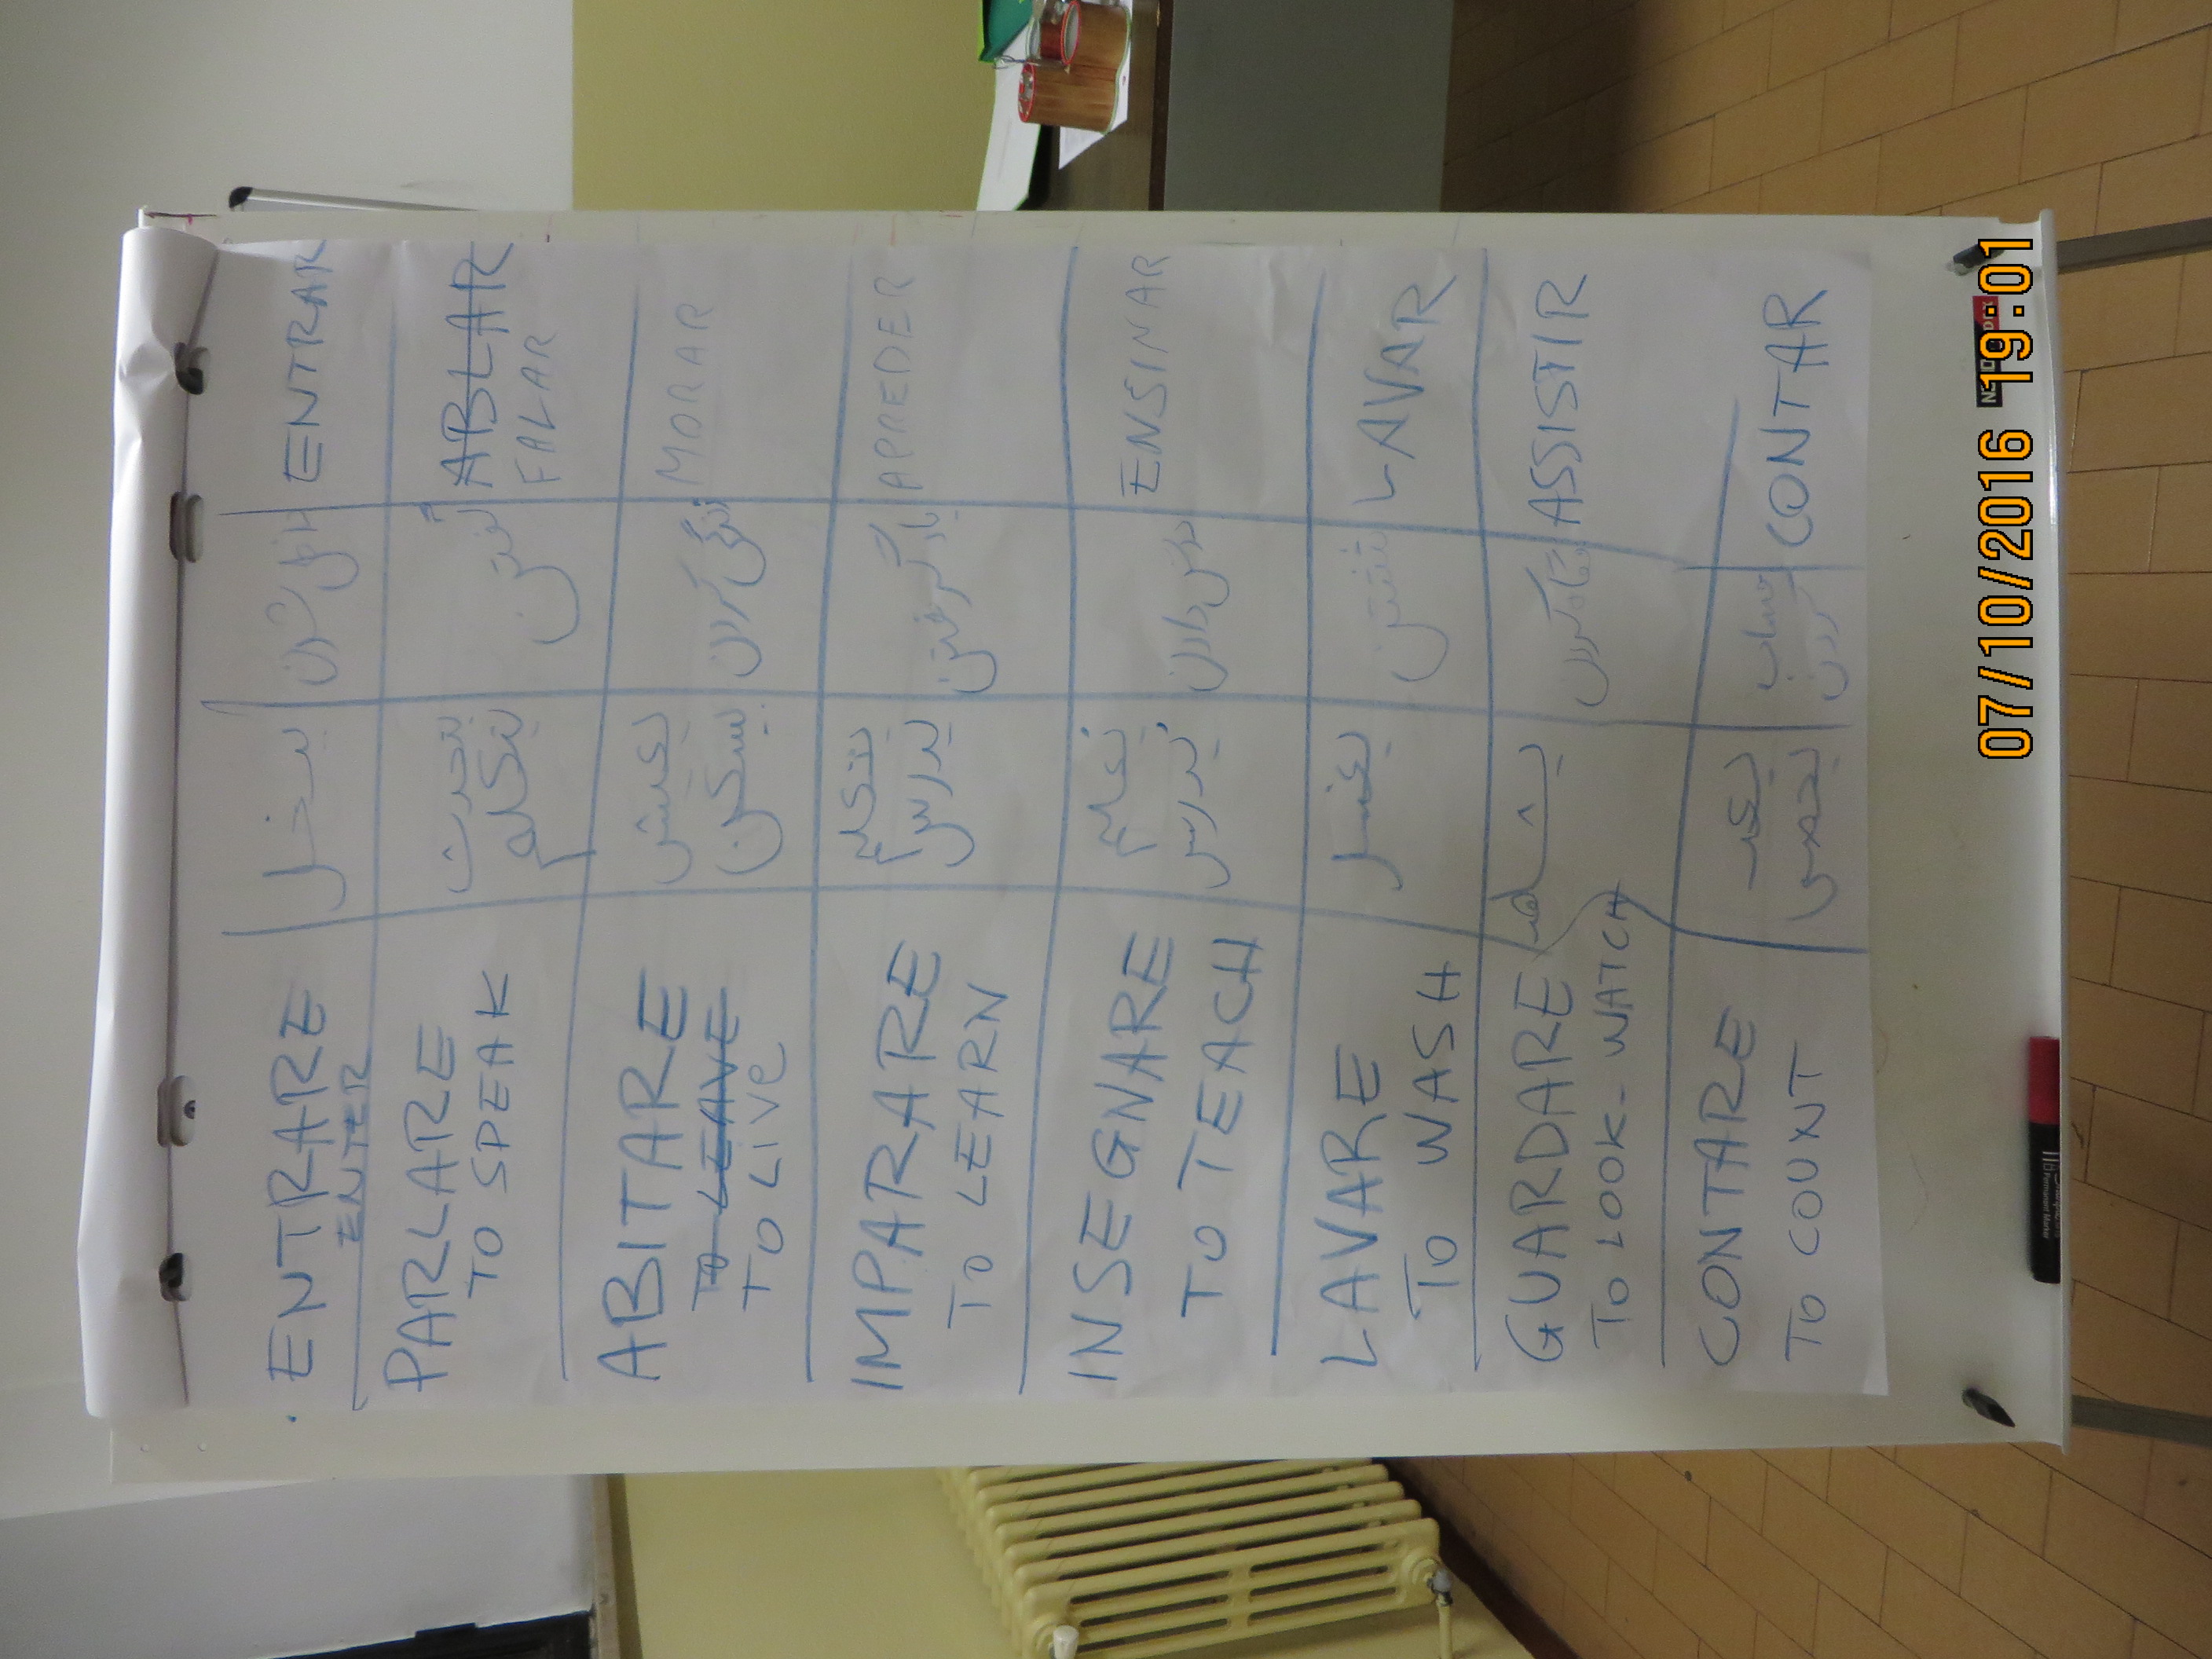 ENTRARE
ENTER
يدخل
داخل شدن
ENTRAR
PARLARE
TO SPEAK
يتحدث
يتكلم
گفتن
ABLAR
FALAR
ABITARE
TO LEAVE
TO LIVE
يعيش
يسكن
زندگی کردن
MORAR
IMPARARE
TO LEARN
يتعلم
يدرس
یاد گرفتن
APREDER
INSEGNARE
TO TEACH
يعلم
يدرس
درس دادن
ENSINAR
LAVARE
TO WASH
يغسل
شستن
LAVAR
GUARDARE
TO LOOK - WATCH
يشاهد
ASSISTIR
CONTARE
TO COUNT
يعد
يحصي
حساب
کردن
CONTAR
07/10/2016 19:01